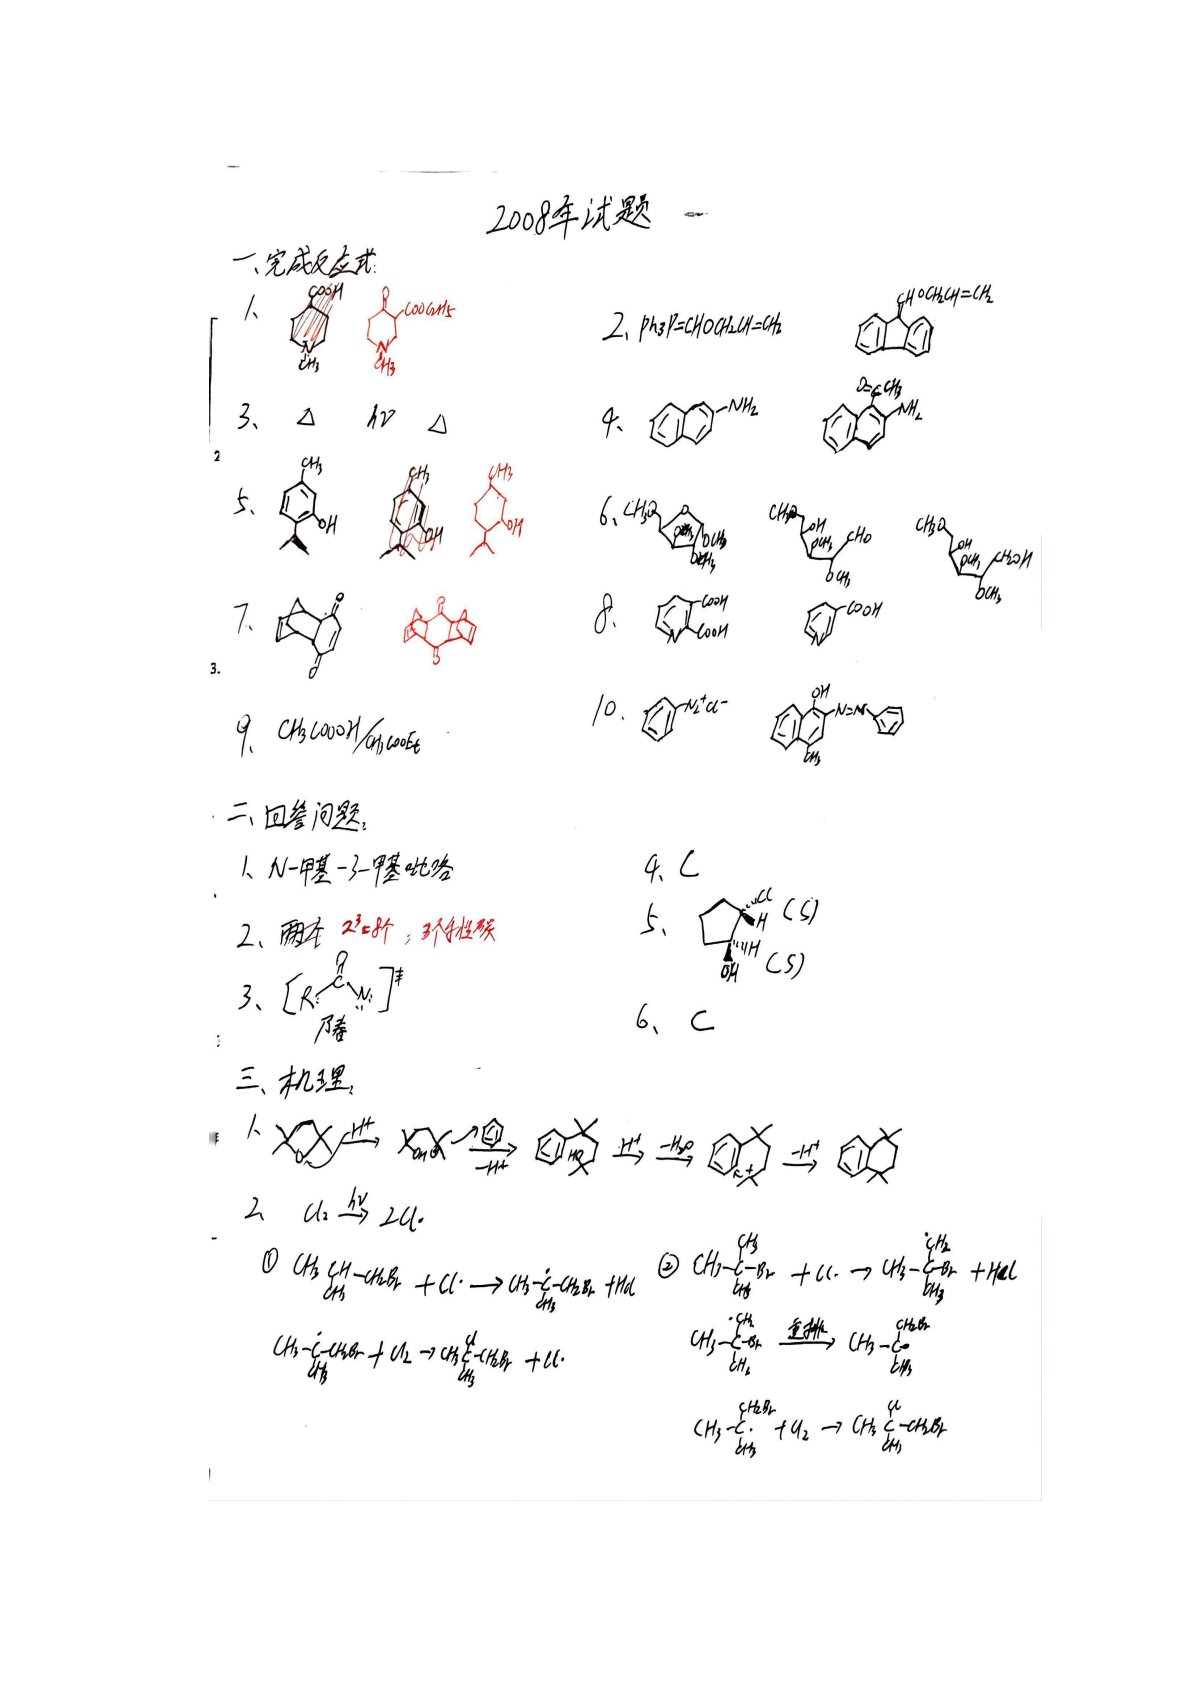 2008年试题
一、完成反应式:
1. COOH N CH3 O COOC2H5 N CH3
2. ph3P=CHOCH2CH=CH2 CHOCH2CH=CH2
2
3、 △ hν △
4. NH2 O=C CH3 NH2
5. CH3 OH CH3 OH CH3 OH
6. CH3O O OCH3 OCH3 OCH3 CH3O OH OCH3 CHO OCH3 CH3O OH OCH3 CH2OH OCH3
7. O O O O
8. COOH COOH N COOH N
3.
9. CH3COOOH/CH3COOEt
10. N2+Cl- OH N=N CH3
二、回答问题:
1. N-甲基-3-甲基吡咯
2、 两本 2^3=8个; 3个手性碳
3、 [R: O C N:]‡
乃春
4. C
5. Cl H (S) H OH (S)
6、 C
三、机理:
1. O H+ OH -H+ HO H+ -H2O + -H+
2. Cl2 hν→ 2Cl·
① CH3CH(CH3)-CH2Br + Cl· → CH3-Ċ(CH3)-CH2Br + HCl
CH3-Ċ(CH3)-CH2Br + Cl2 → CH3C(Cl)(CH3)-CH2Br + Cl·
② CH3-C(CH3)(CH3)-Br + Cl· → CH3-C(ĊH2)(CH3)-Br + HCl
CH3-C(·CH2)(CH3)-Br 重排→ CH3-C·(CH2Br)(CH3)
CH3-C·(CH2Br)(CH3) + Cl2 → CH3C(Cl)(CH3)-CH2Br